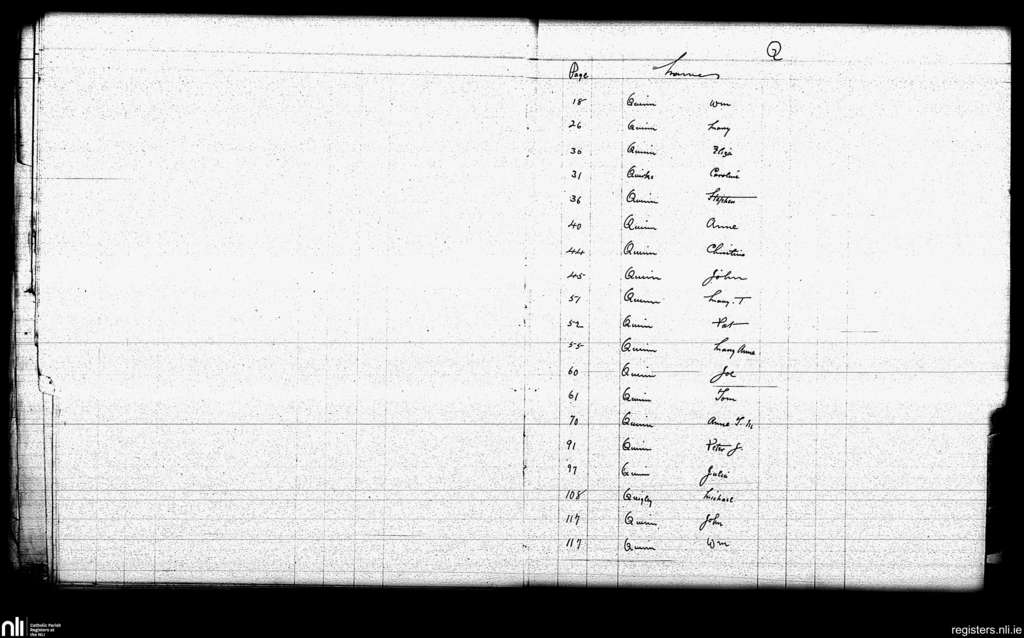 Q
Page Names
18 Quinn Wm
26 Quinn Mary
30 Quinn Eliza
31 Quirke Caroline
36 Quinn Stephen
40 Quinn Anne
44 Quinn Christina
45 Quinn John
51 Quinn Mary T
52 Quinn Pat
55 Quinn Mary Anne
60 Quinn Joe
61 Quinn Tom
70 Quinn Anne T. M.
91 Quinn Peter J.
97 Quinn Julia
108 Quigley Michael
117 Quinn John
117 Quinn Wm
nli Catholic Parish
Registers at
the NLI
registers.nli.ie